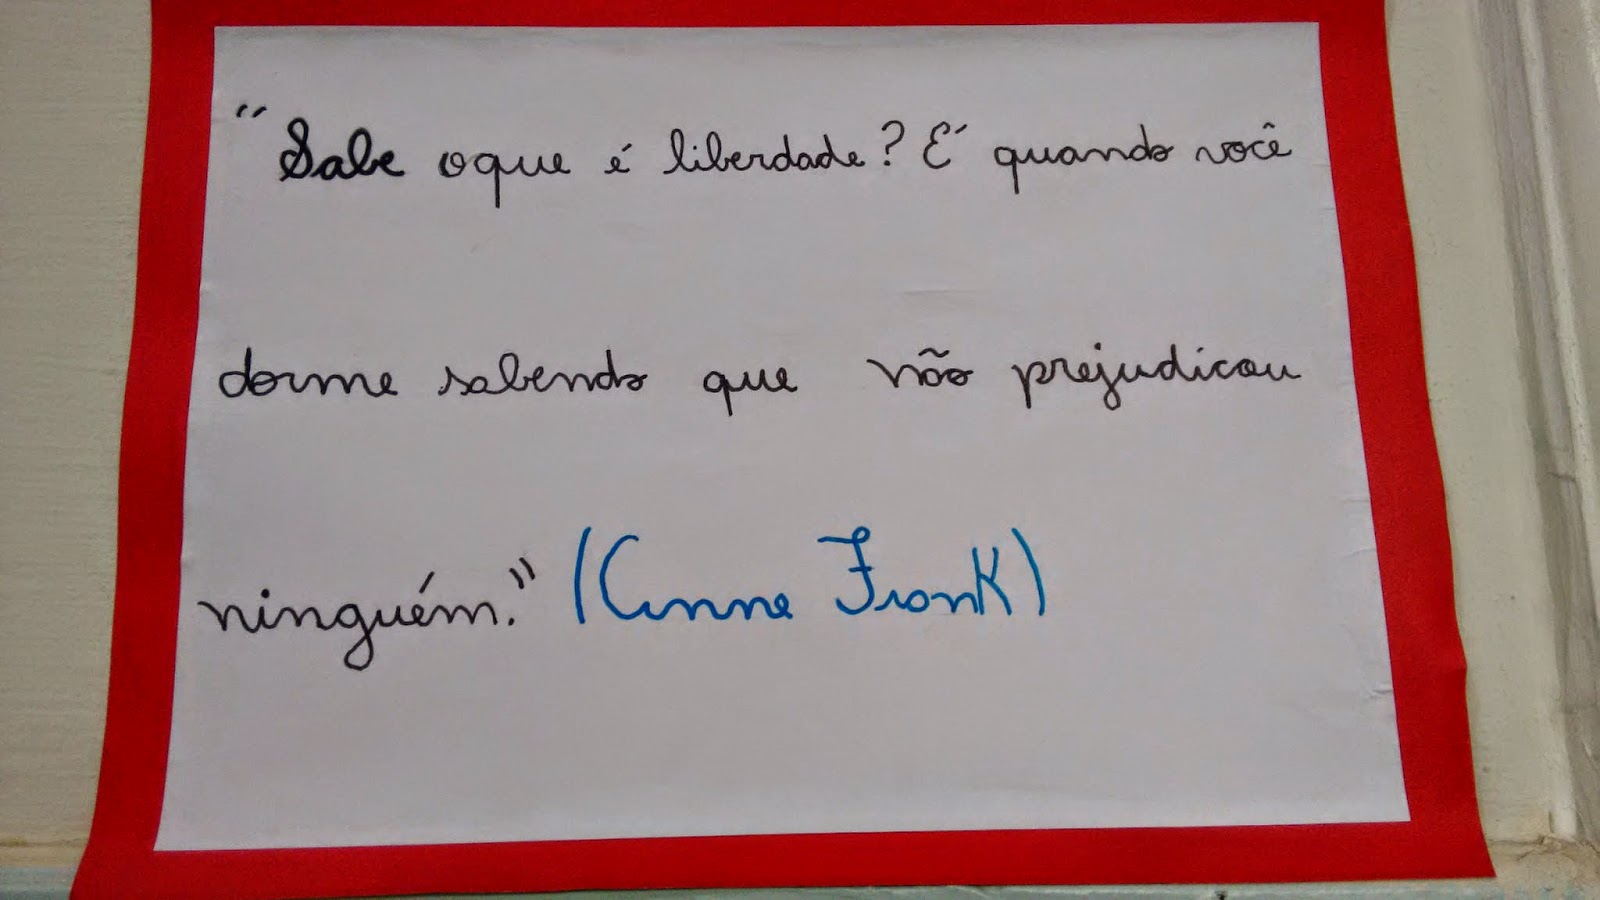 "Sabe oque é liberdade? É quando você
dorme sabendo que não prejudicou
ninguém." (Anne Frank)